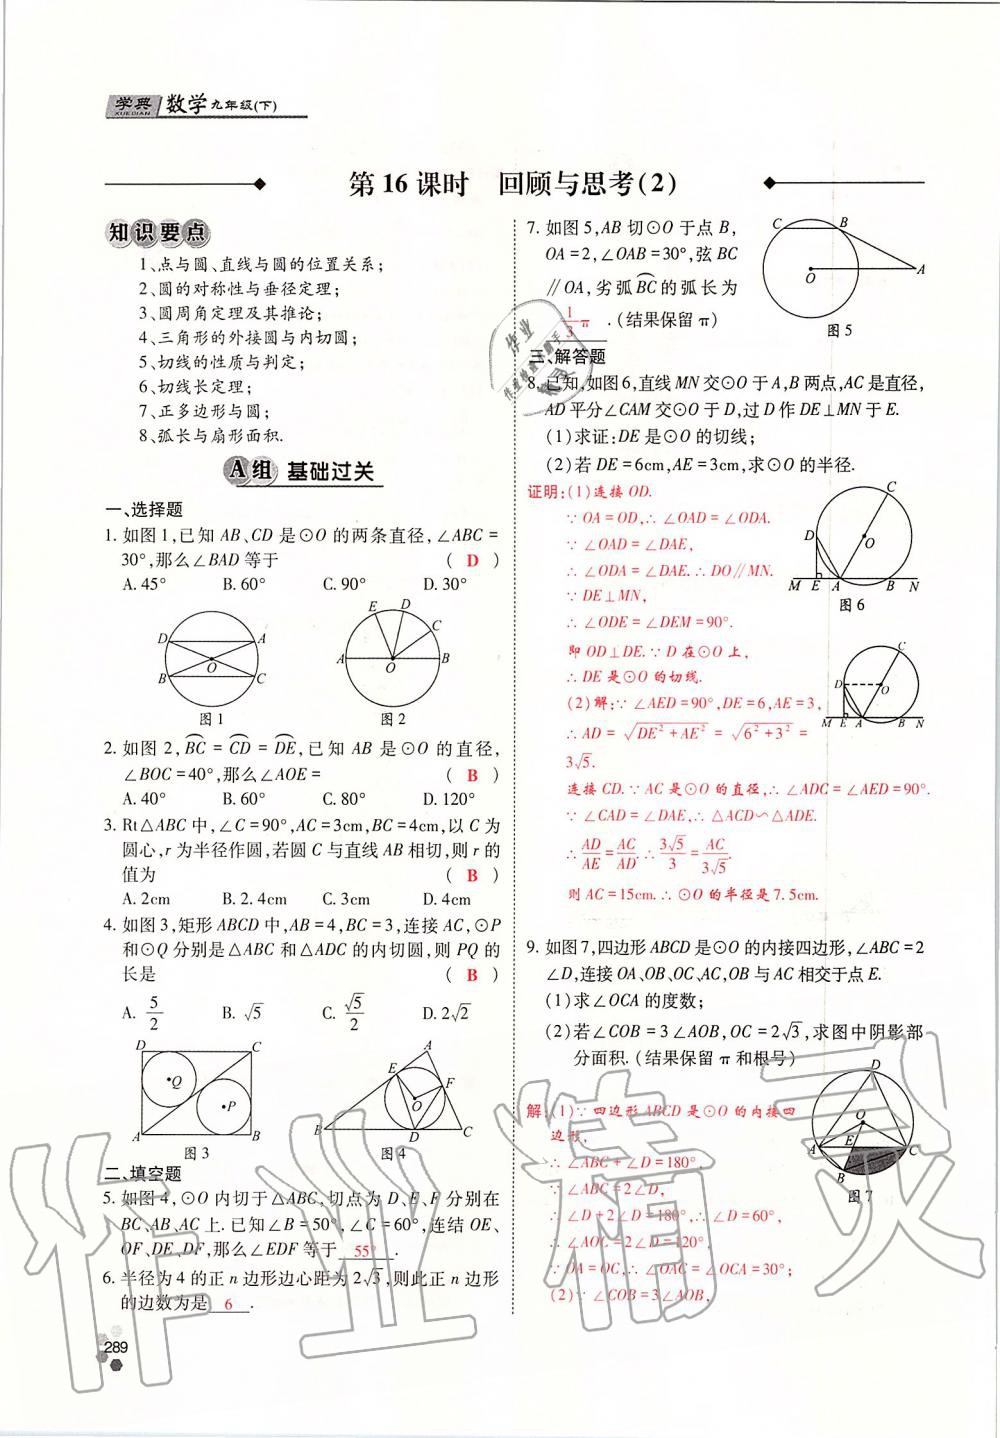 学典
XUEDIAN
数学九年级(下)
第16课时 回顾与思考(2)
知识要点
1、点与圆、直线与圆的位置关系;
2、圆的对称性与垂径定理;
3、圆周角定理及其推论;
4、三角形的外接圆与内切圆;
5、切线的性质与判定;
6、切线长定理;
7、正多边形与圆;
8、弧长与扇形面积.
A组 基础过关
一、选择题
1. 如图1,已知AB、CD是⊙O的两条直径,∠ABC=
30°,那么∠BAD等于 ( D )
A. 45° B. 60° C. 90° D. 30°
D A O B C
图1
E D C A O B
图2
2. 如图2,BC⌒=CD⌒=DE⌒,已知AB是⊙O的直径,
∠BOC=40°,那么∠AOE= ( B )
A. 40° B. 60° C. 80° D. 120°
3. Rt△ABC中,∠C=90°,AC=3cm,BC=4cm,以C为
圆心,r为半径作圆,若圆C与直线AB相切,则r的
值为 ( B )
A. 2cm B. 2.4cm C. 3cm D. 4cm
4. 如图3,矩形ABCD中,AB=4,BC=3,连接AC,⊙P
和⊙Q分别是△ABC和△ADC的内切圆,则PQ的
长是 ( B )
A. 5/2 B. √5 C. √5/2 D. 2√2
D C Q P A B
图3
A E F O B D C
图4
二、填空题
5. 如图4,⊙O内切于△ABC,切点为D、E、F分别在
BC、AB、AC上.已知∠B=50°,∠C=60°,连结OE、
OF、DE、DF,那么∠EDF等于 55° .
6. 半径为4的正n边形边心距为2√3,则此正n边形
的边数为是 6 .
289
7. 如图5,AB切⊙O于点B,
OA=2,∠OAB=30°,弦BC
∥OA,劣弧BC⌒的弧长为
1/3 π .(结果保留π)
C B O A
图5
三、解答题
8. 已知,如图6,直线MN交⊙O于A,B两点,AC是直径,
AD平分∠CAM交⊙O于D,过D作DE⊥MN于E.
(1)求证:DE是⊙O的切线;
(2)若DE=6cm,AE=3cm,求⊙O的半径.
证明:(1)连接OD.
∵OA=OD,∴∠OAD=∠ODA.
∵∠OAD=∠DAE,
∴∠ODA=∠DAE.∴DO∥MN.
∵DE⊥MN,
∴∠ODE=∠DEM=90°.
即OD⊥DE.∵D在⊙O上,
∴DE是⊙O的切线.
(2)解:∵∠AED=90°,DE=6,AE=3,
∴AD=√(DE²+AE²)=√(6²+3²)=
3√5.
连接CD.∵AC是⊙O的直径,∴∠ADC=∠AED=90°.
∵∠CAD=∠DAE,∴△ACD∽△ADE.
∴AD/AE=AC/AD.∴3√5/3=AC/3√5.
则AC=15cm.∴⊙O的半径是7.5cm.
C D O M E A B N
图6
C D O M E A B N
9. 如图7,四边形ABCD是⊙O的内接四边形,∠ABC=2
∠D,连接OA、OB、OC、AC,OB与AC相交于点E.
(1)求∠OCA的度数;
(2)若∠COB=3∠AOB,OC=2√3,求图中阴影部
分面积.(结果保留π和根号)
解:(1)∵四边形ABCD是⊙O的内接四
边形,
∴∠ABC+∠D=180°,
∵∠ABC=2∠D,
∴∠D+2∠D=180°,∴∠D=60°,
∴∠AOC=2∠D=120°,
∵OA=OC,∴∠OAC=∠OCA=30°;
(2)∵∠COB=3∠AOB,
D O E A C B
图7
作业精灵